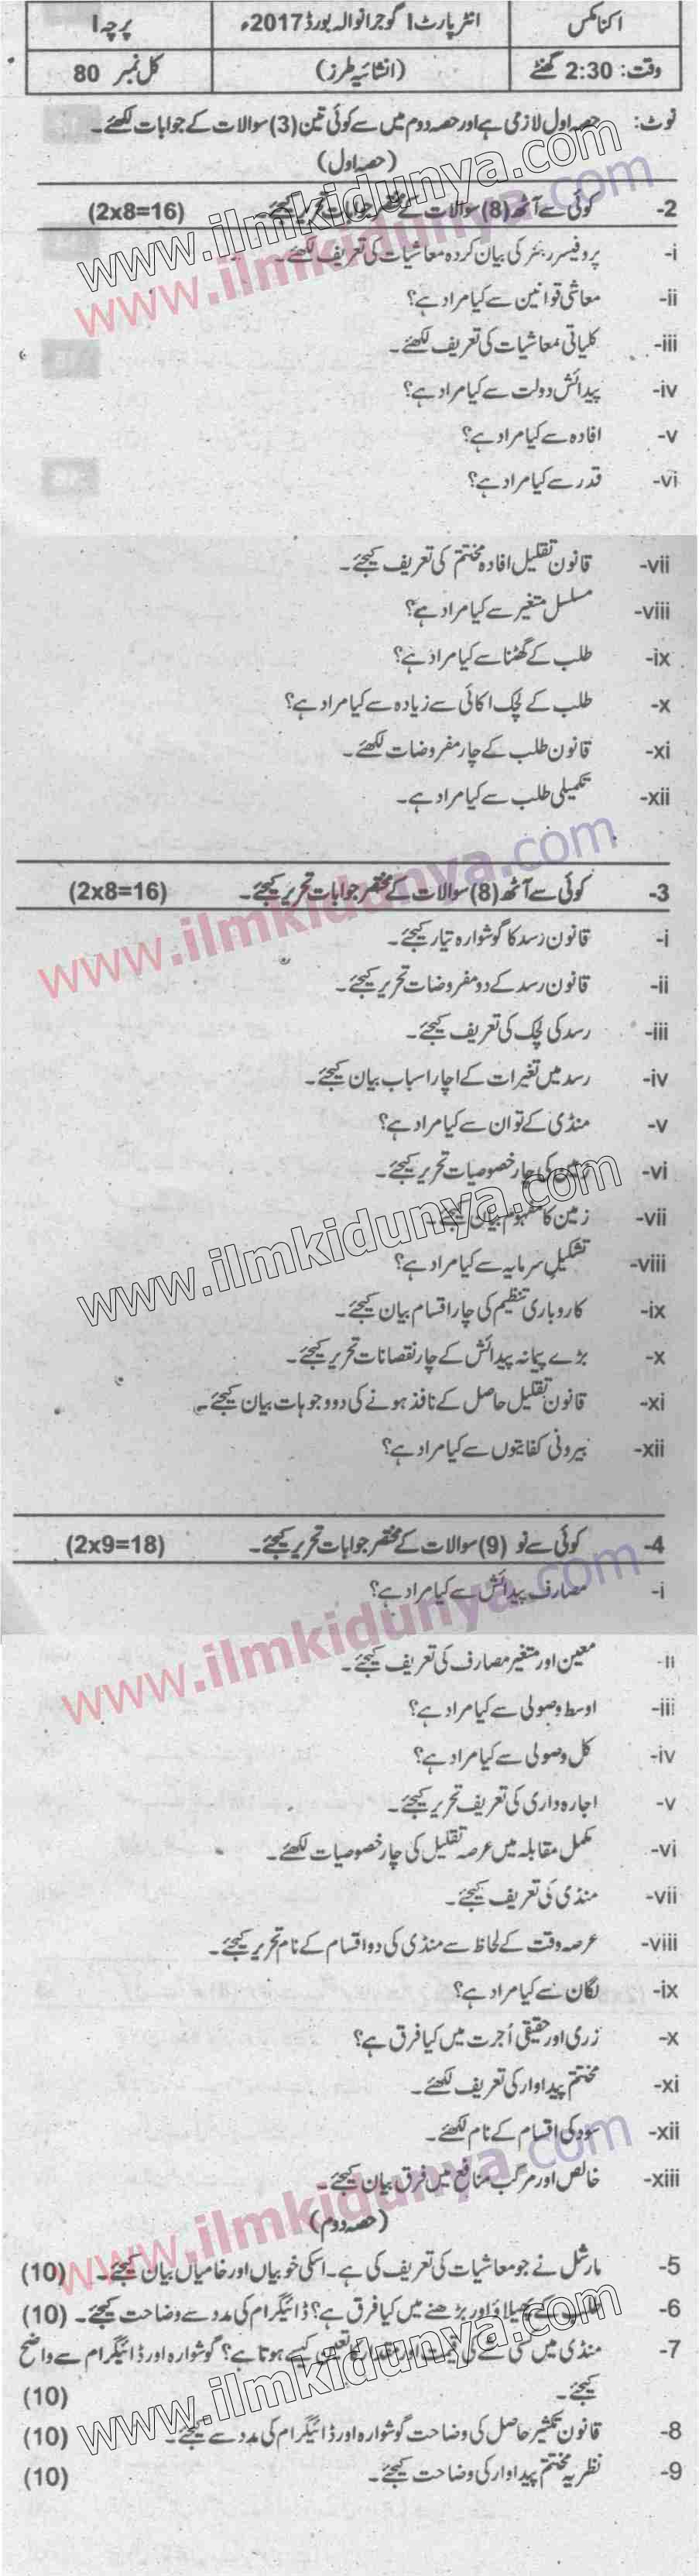 اکنامکس انٹر پارٹ I گوجرانوالہ بورڈ 2017ء پرچہ I
وقت: 2:30 گھنٹے (انشائیہ طرز) کل نمبر 80
نوٹ: حصہ اول لازمی ہے اور حصہ دوم میں سے کوئی تین (3) سوالات کے جوابات لکھئے۔
(حصہ اول)
2- کوئی سے آٹھ (8) سوالات کے مختصر جوابات تحریر کیجئے۔ (2x8=16)
i- پروفیسر رینز کی بیان کردہ معاشیات کی تعریف لکھئے۔
ii- معاشی قوانین سے کیا مراد ہے؟
iii- کلیاتی معاشیات کی تعریف لکھئے۔
iv- پیدائش دولت سے کیا مراد ہے؟
v- افادہ سے کیا مراد ہے؟
vi- قدر سے کیا مراد ہے؟
vii- قانون تقلیل افادہ مختتم کی تعریف کیجئے۔
viii- مسلسل متغیر سے کیا مراد ہے؟
ix- طلب کے گھٹنا سے کیا مراد ہے؟
x- طلب کے لچک اکائی سے زیادہ سے کیا مراد ہے؟
xi- قانون طلب کے چار مفروضات لکھئے۔
xii- تکمیلی طلب سے کیا مراد ہے۔
3- کوئی سے آٹھ (8) سوالات کے مختصر جوابات تحریر کیجئے۔ (2x8=16)
i- قانون رسد کا گوشوارہ تیار کیجئے۔
ii- قانون رسد کے دو مفروضات تحریر کیجئے۔
iii- رسد کی لچک کی تعریف کیجئے۔
iv- رسد میں تغیرات کے اچار اسباب بیان کیجئے۔
v- منڈی کے توازن سے کیا مراد ہے؟
vi- کی چار خصوصیات تحریر کیجئے۔
vii- زمین کا مفہوم بیان کیجئے۔
viii- تشکیل سرمایہ سے کیا مراد ہے؟
ix- کاروباری تنظیم کی چار اقسام بیان کیجئے۔
x- بڑے پیمانہ پیدائش کے چار نقصانات تحریر کیجئے۔
xi- قانون تقلیل حاصل کے نافذ ہونے کی دو وجوہات بیان کیجئے۔
xii- بیرونی کفایتوں سے کیا مراد ہے؟
4- کوئی سے نو (9) سوالات کے مختصر جوابات تحریر کیجئے۔ (2x9=18)
i- مصارف پیدائش سے کیا مراد ہے؟
ii- معین اور متغیر مصارف کی تعریف کیجئے۔
iii- اوسط وصولی سے کیا مراد ہے؟
iv- کل وصولی سے کیا مراد ہے؟
v- اجارہ داری کی تعریف تحریر کیجئے۔
vi- مکمل مقابلہ میں عرصہ تقلیل کی چار خصوصیات لکھئے۔
vii- منڈی کی تعریف کیجئے۔
viii- عرصہ وقت کے لحاظ سے منڈی کی دو اقسام کے نام تحریر کیجئے۔
ix- لگان سے کیا مراد ہے؟
x- زری اور حقیقی اُجرت میں کیا فرق ہے؟
xi- مختتم پیداوار کی تعریف لکھئے۔
xii- سود کی اقسام کے نام لکھئے۔
xiii- خالص اور مرکب منافع میں فرق بیان کیجئے۔
(حصہ دوم)
5- مارشل نے جو معاشیات کی تعریف کی ہے۔ اسکی خوبیاں اور خامیاں بیان کیجئے۔ (10)
6- طلب کے پھیلاؤ اور بڑھنے میں کیا فرق ہے؟ ڈائیگرام کی مدد سے وضاحت کیجئے۔ (10)
7- منڈی میں کسی شے کی قیمت اور مقدار کا تعین کیسے ہوتا ہے؟ گوشوارہ اور ڈائیگرام سے واضح
کیجئے۔ (10)
8- قانون تکثیر حاصل کی وضاحت گوشوارہ اور ڈائیگرام کی مدد سے کیجئے۔ (10)
9- نظریہ مختتم پیداوار کی وضاحت کیجئے۔ (10)
www.ilmkidunya.com
www.ilmkidunya.com
www.ilmkidunya.com
www.ilmkidunya.com
www.ilmkidunya.com
www.ilmkidunya.com
www.ilmkidunya.com